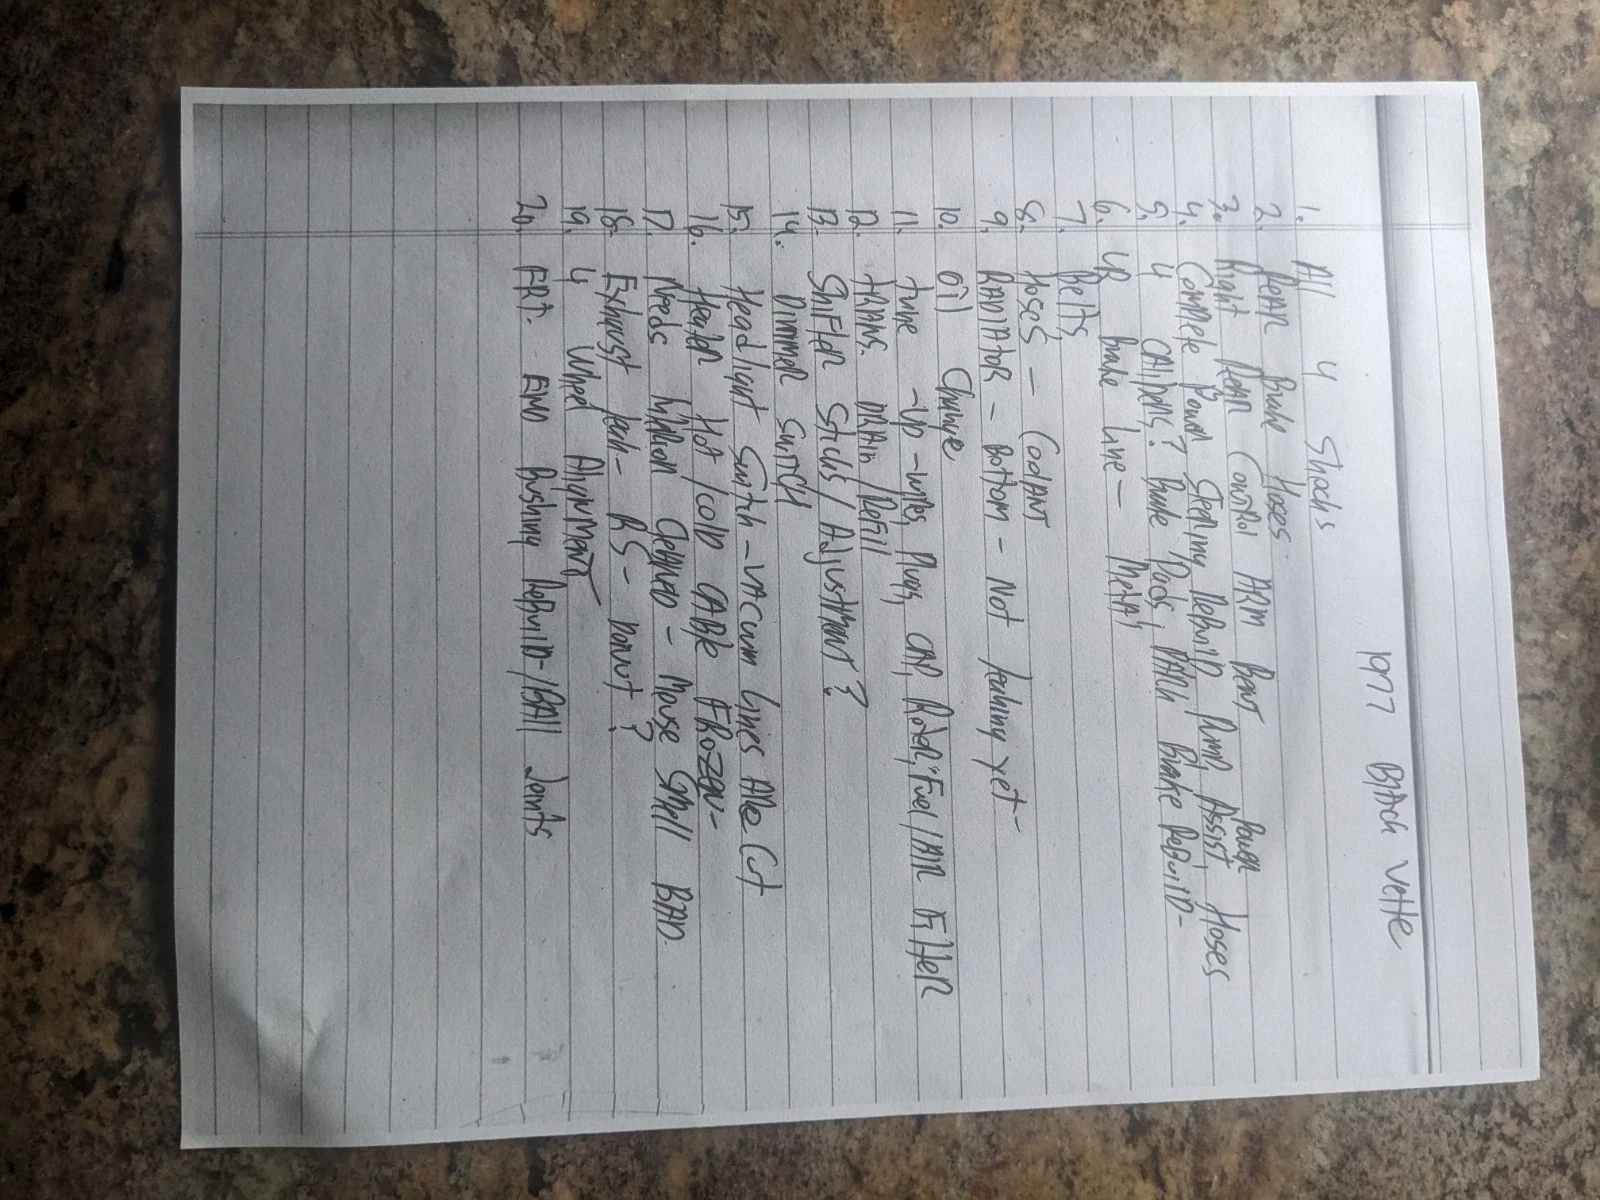 1977 Black Vette
1. All 4 Shocks
2. Rear Brake Hoses.
3. Right Rear Control Arm Bent
4. Complete Power Steering Rebuild Pump, Assist, Power Hoses
5. 4 Calipers? Brake Pads, Brake Rebuild-
6. LR Brake Line - Metal
7. Belts
8. Hoses - Coolant
9. Radiator - Bottom - Not Leaking yet-
10. Oil Change
11. Tune-Up-Wires, Plugs, Cap, Rotor, Fuel/Air Filter
12. Trans. Drain/Refill
13. Shifter Sticks/Adjustment?
14. Dimmer Switch
15. Headlight Switch-Vacuum Lines Are Cut
16. Heater Hot/Cold Cable Frozen-
17. Needs Cleaned - Mouse Smell BAD.
18. Exhaust Leak- RS- Donut?
19. 4 Wheel Alignment
20. FRT. END Bushing Rebuild-/Ball Joints